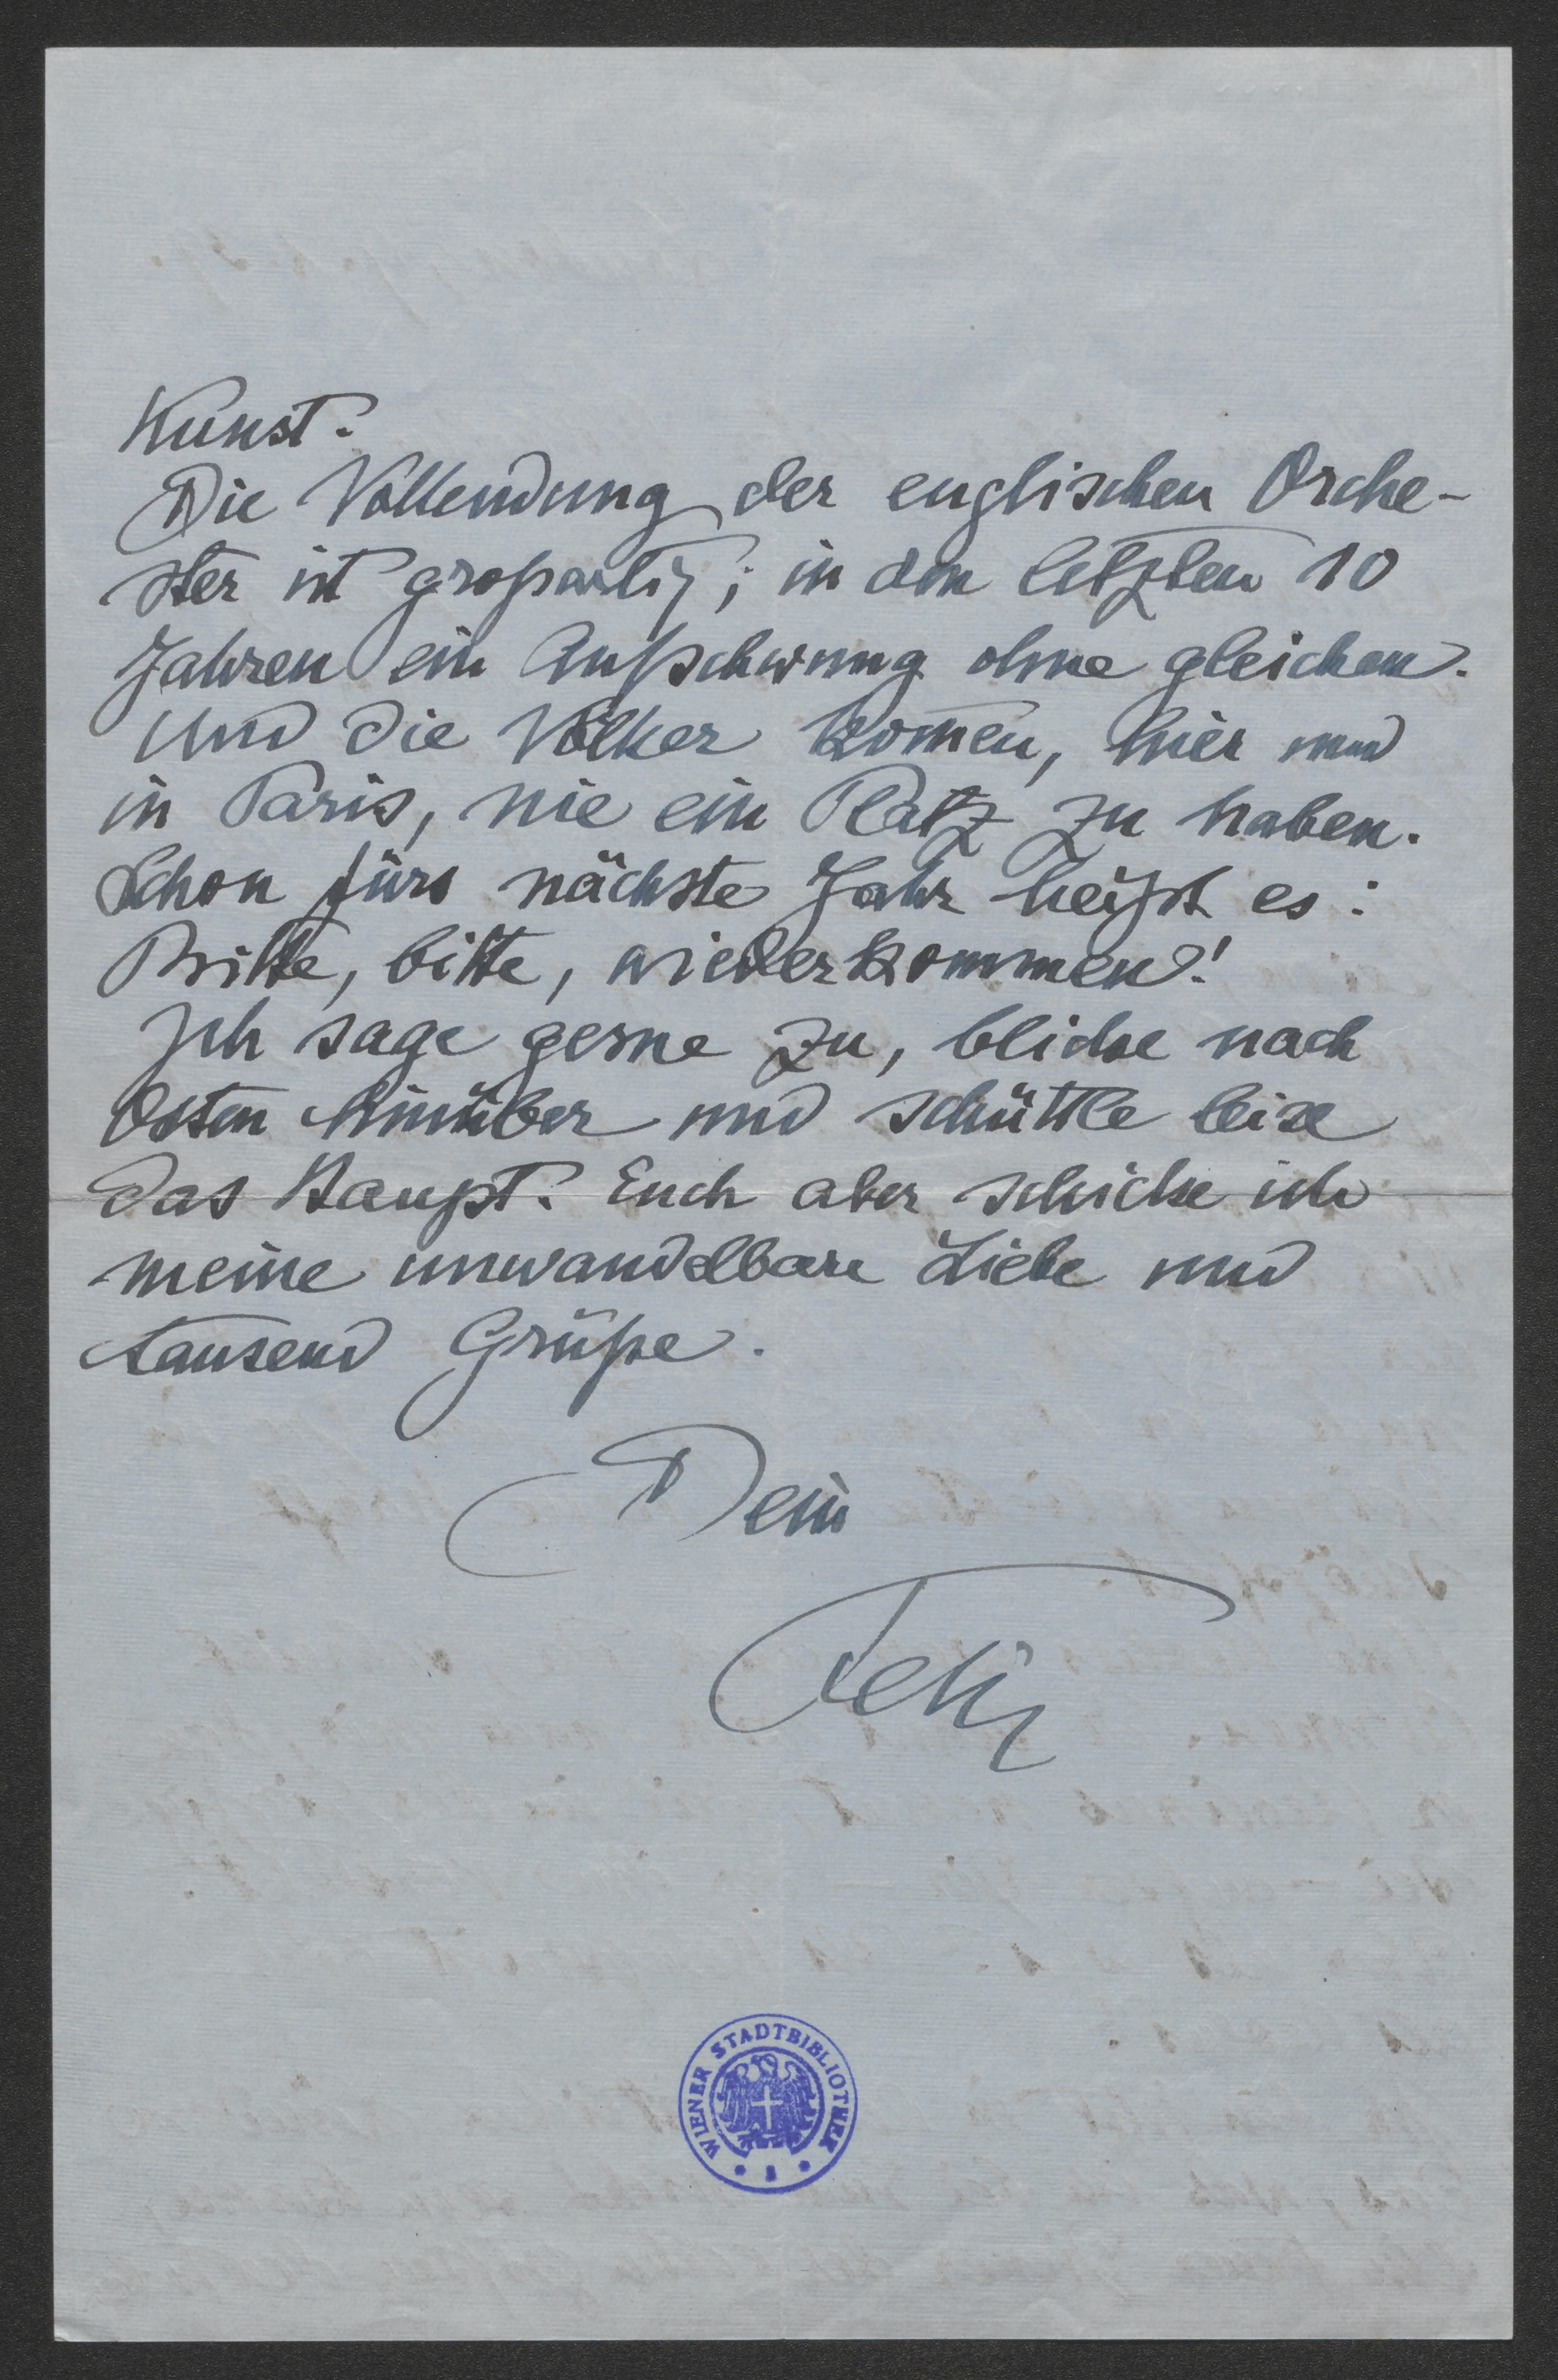 Kunst.
Die Vollendung der englischen Orche-
ster ist großartig; in den letzten 10
Jahren ein Aufschwung ohne gleichen.
Und die Völker kom̄en, hier und
in Paris, nie ein Platz zu haben.
Schon fürs nächste Jahr heißt es:
Bitte, bitte, wiederkommen!
Ich sage gerne zu, blicke nach
Osten hinüber und schüttle leise
das Haupt. Euch aber schicke ich
meine unwandelbare Liebe und
tausend Grüße.
Dein
Felix
WIENER STADTBIBLIOTHEK